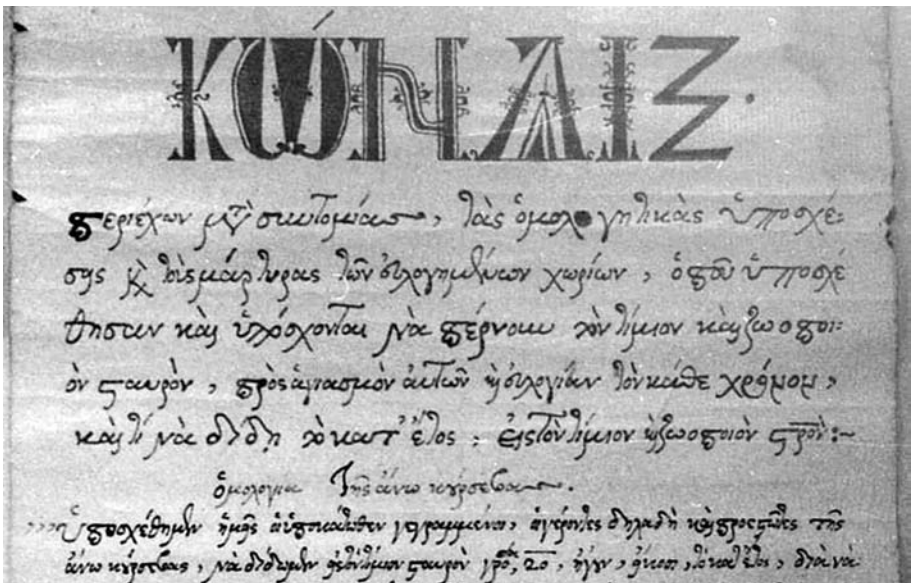 ΚΏΝΔΙΞ.
περιέχων μετὰ συντομίας, τὰς ὁμολογητικὰς ὑποσχέ:
σης καὶ τοὺς μάρτυρας τῶν εὐλογημένων χωρίων, ὁποῦ ὑποσχέ
θησαν καὶ ὑπόσχονται νὰ πέρνουν τὸν τίμιον καὶ ζωοποι:
ὸν σταυρὸν, πρὸς ἁγιασμὸν αὐτῶν καὶ εὐλογίαν τὸν κάθε χρόνον,
καὶ τί νὰ δίδῃ τὸ κατ' ἔτος, εἰς τὸν τίμιον καὶ ζωοποιὸν στρὸν:~
ὁμολογία τῆς ἄνω
Ὑποσχέθημεν ἡμεῖς οἱ ὑποκάτωθεν γεγραμμένοι, οἱ γέροντες δηλαδὴ καὶ προεστῶτες τῆς
ἄνω νὰ δίδωμεν εἰς τὸν τίμιον σταυρὸν γρό, 20, ἤγουν, εἴκοσι, τὸ καθ' ἔτος, διὰ νὰ